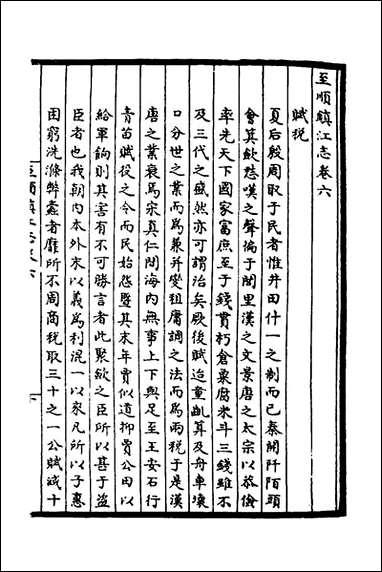 至順鎮江志卷六
賦稅
夏后殷周取于民者惟井田什一之制而已秦開阡陌頭
會箕歛愁嘆之聲徧于閭里漢之文景唐之太宗以恭儉
率先天下國家富庶至于錢貫朽倉粟腐米斗三錢雖不
及三代之盛然亦可謂治矣厥後賦迨童齓算及舟車壞
口分世之業而為兼并變租庸調之法而為兩稅于是漢
唐之業衰焉宋真仁間海內無事上下興足至王安石行
青苗賦役之令而民始怨暨其末年賈似道抑買公田以
給軍餉則其害有不可勝言者此聚歛之臣所以甚于盜
臣者也我朝內本外末以義為利混一以來凡所以子惠
困窮洗滌弊蠹者靡所不周商稅取三十之一公賦減十
至順鎮江志卷六